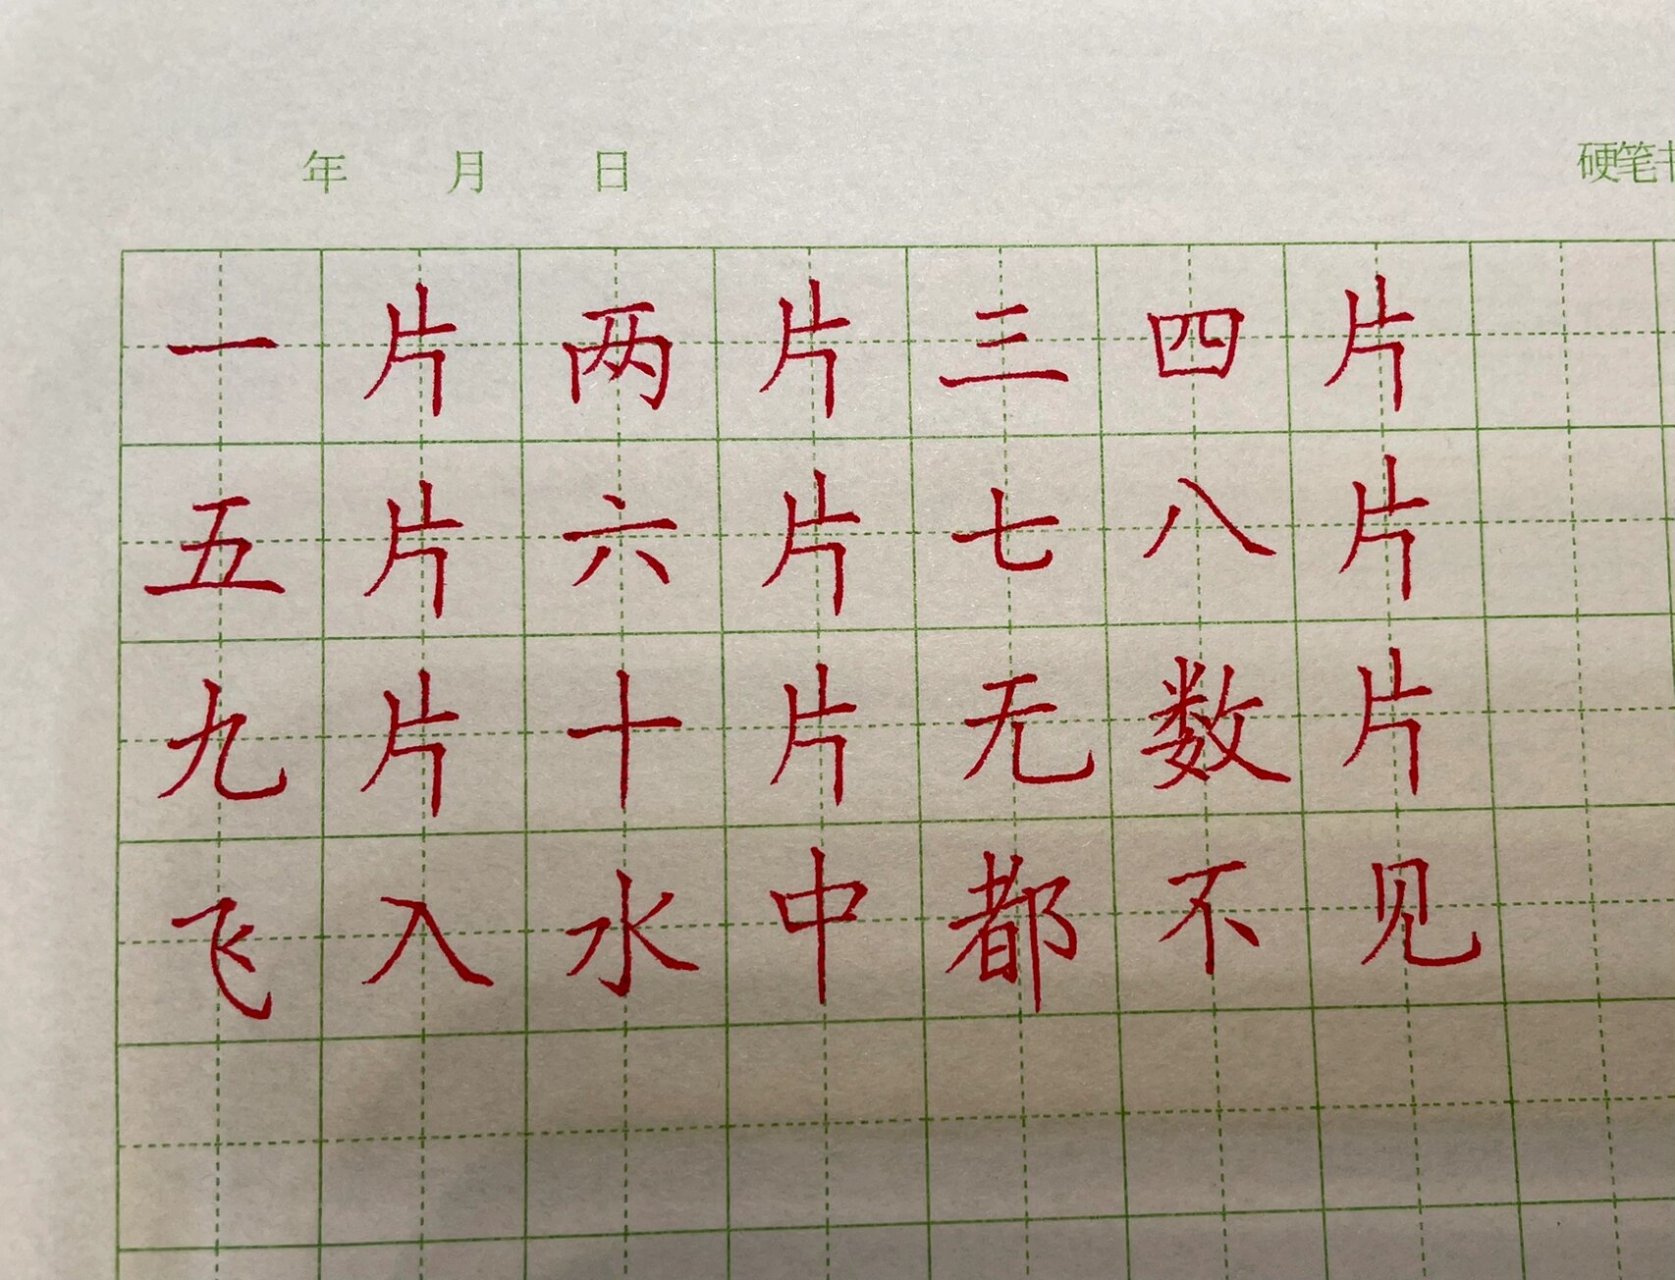 年 月 日 硬笔书
一片两片三四片
五片六片七八片
九片十片无数片
飞入水中都不见